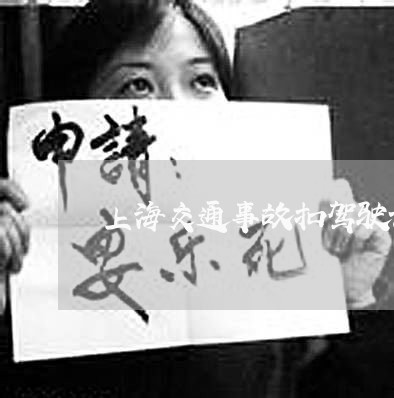 申請：
上海交通事故扣驾驶
安乐死